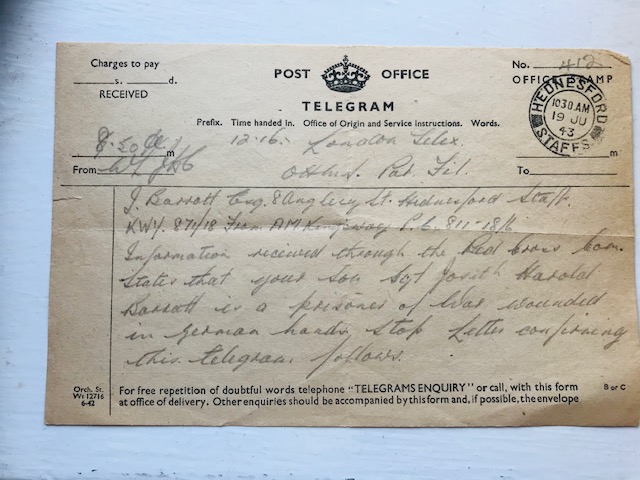 Charges to pay
s. d.
RECEIVED
POST OFFICE
TELEGRAM
Prefix. Time handed in. Office of Origin and Service Instructions. Words.
No. 412
OFFICE STAMP
HEDNESFORD
1030 AM
19 JU
43
STAFFS
12.16. London Telex
m
From
OHMS. Pat. Fil.
To
m
J. Barratt Esq. 8 Anglesey St. Hednesford Staff.
KWY. 871/18 From A.M. Kingsway P.C. 811 - 18/6
Information received through the Red Cross Com.
States that your Son Sgt Josith Harold
Barratt is a prisoner of War wounded
in German hands Stop Letter confirming
this telegram follows.
Orch. St.
Wt 12716
6-42
For free repetition of doubtful words telephone "TELEGRAMS ENQUIRY" or call, with this form
at office of delivery. Other enquiries should be accompanied by this form and, if possible, the envelope
B or C